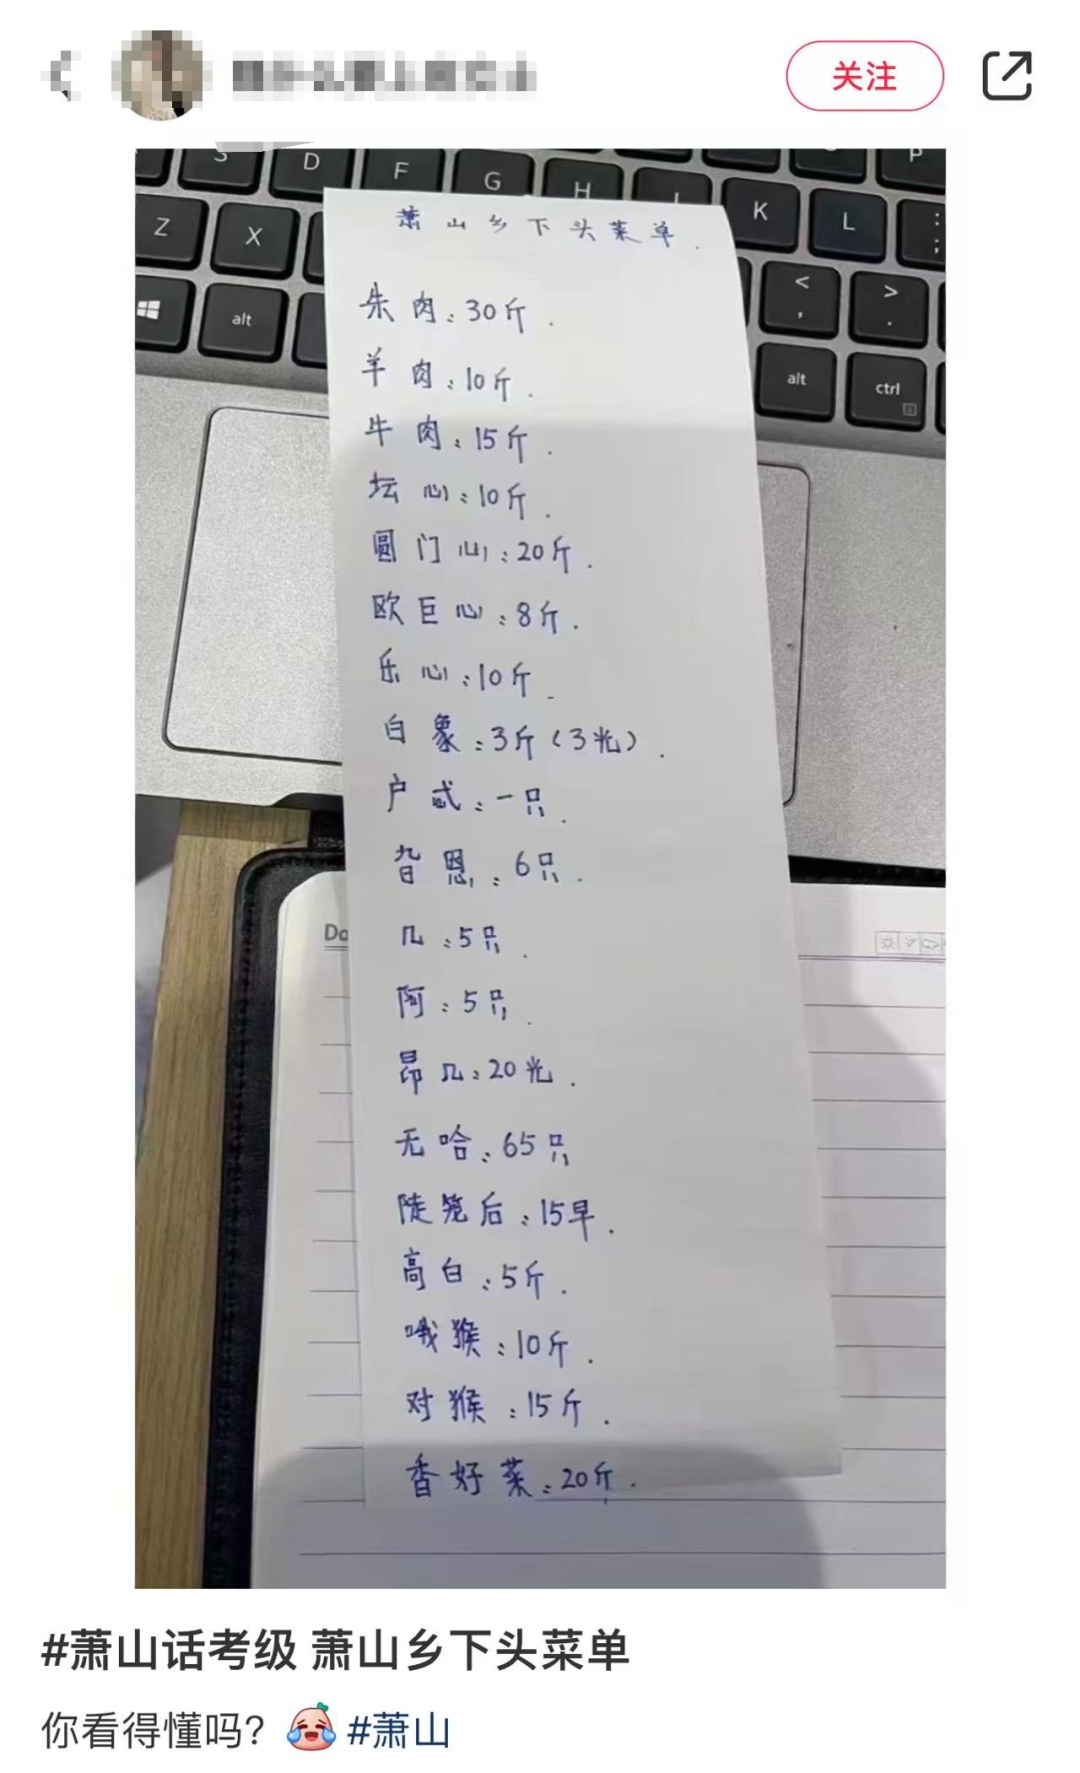 关注
S D F G H J K L P
Z X < , > . : ;
alt alt ctrl
萧山乡下头菜单.
朱肉:30斤.
羊肉:10斤.
牛肉:15斤.
坛心:10斤.
圆门心:20斤.
欧巨心:8斤.
乐心:10斤.
白象:3斤(3光).
户忒:一只.
旮恩:6只.
几:5只.
阿:5只.
昂几:20光.
无哈:65只
陡笼后:15早.
高白:5斤.
哦猴:10斤.
对猴:15斤.
香好菜:20斤.
#萧山话考级 萧山乡下头菜单
你看得懂吗? #萧山